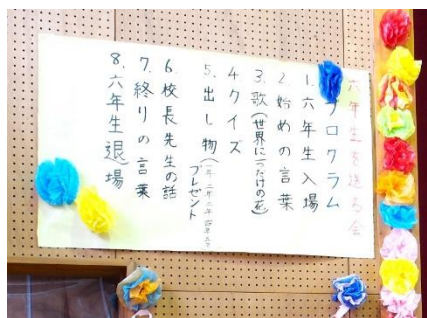 六年生を送る会
プログラム
1. 六年生入場
2. 始めの言葉
3. 歌(世界に一つだけの花)
4 クイズ
5. 出し物(
プレゼント
6. 校長先生の話
7. 終りの言葉
8. 六年生退場